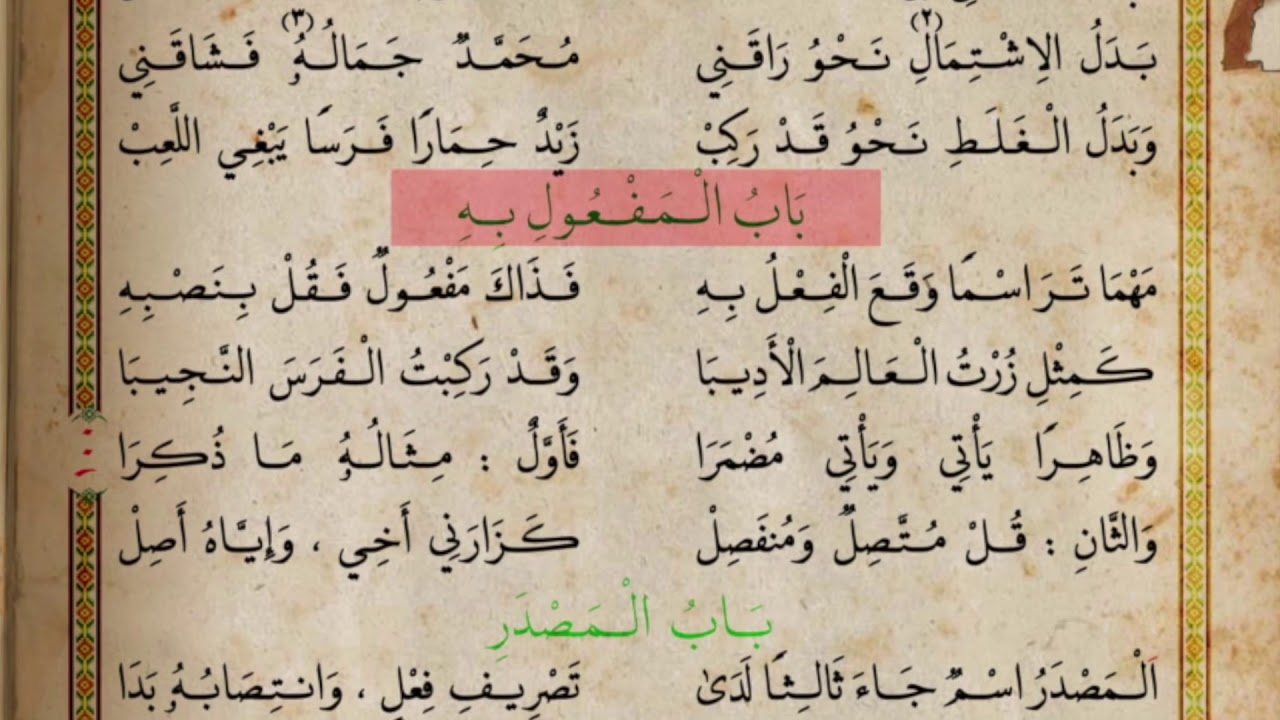 بَدَلُ الِاشْتِمَالِ(٢) نَحْوُ رَاقَنِي مُحَمَّدٌ جَمَالُهُ(٣) فَشَاقَنِي
وَبَدَلُ الْغَلَطِ نَحْوُ قَدْ رَكِبْ زَيْدٌ حِمَارًا فَرَسًا يَبْغِي اللَّعِبْ
بَابُ الْمَفْعُولِ بِهِ
مَهْمَا تَرَ اسْمًا وَقَعَ الْفِعْلُ بِهِ فَذَاكَ مَفْعُولٌ فَقُلْ بِنَصْبِهِ
كَمِثْلِ زُرْتُ الْعَالِمَ الْأَدِيبَا وَقَدْ رَكِبْتُ الْفَرَسَ النَّجِيبَا
وَظَاهِرًا يَأْتِي وَيَأْتِي مُضْمَرَا فَأَوَّلٌ : مِثَالُهُ مَا ذُكِرَا
وَالثَّانِ : قُلْ مُتَّصِلٌ وَمُنْفَصِلْ كَزَارَنِي أَخِي ، وَإِيَّاهُ أَصِلْ
بَابُ الْمَصْدَرِ
اَلْمَصْدَرُ اسْمٌ جَاءَ ثَالِثًا لَدَىٰ تَصْرِيفِ فِعْلٍ ، وَانْتِصَابُهُ بَدَا